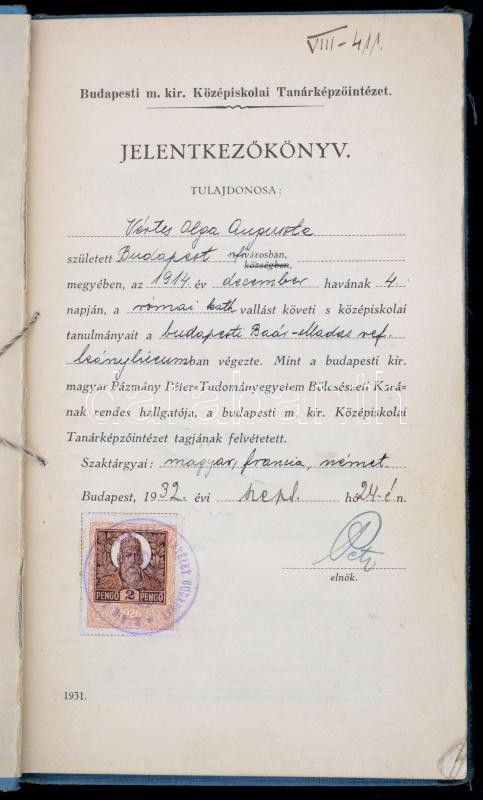 VIII-411.
Budapesti m. kir. Középiskolai Tanárképzőintézet.
JELENTKEZŐKÖNYV.
TULAJDONOSA:
Vértes Olga Auguszta
született Budapest városban,
községben,
megyében, az 1914. év december havának 4.
napján, a római kath. vallást követi s középiskolai
tanulmányait a budapesti Baár-Madas ref.
leánylíceumban végezte. Mint a budapesti kir.
magyar Pázmány Péter-Tudományegyetem Bölcsészeti Kará-
nak rendes hallgatója, a budapesti m. kir. Középiskolai
Tanárképzőintézet tagjának felvétetett.
Szaktárgyai: magyar, francia, német.
Budapest, 1932. évi szept. hó 24-én.
elnök.
2
PENGŐ PENGŐ
1926
1931.
darabanth